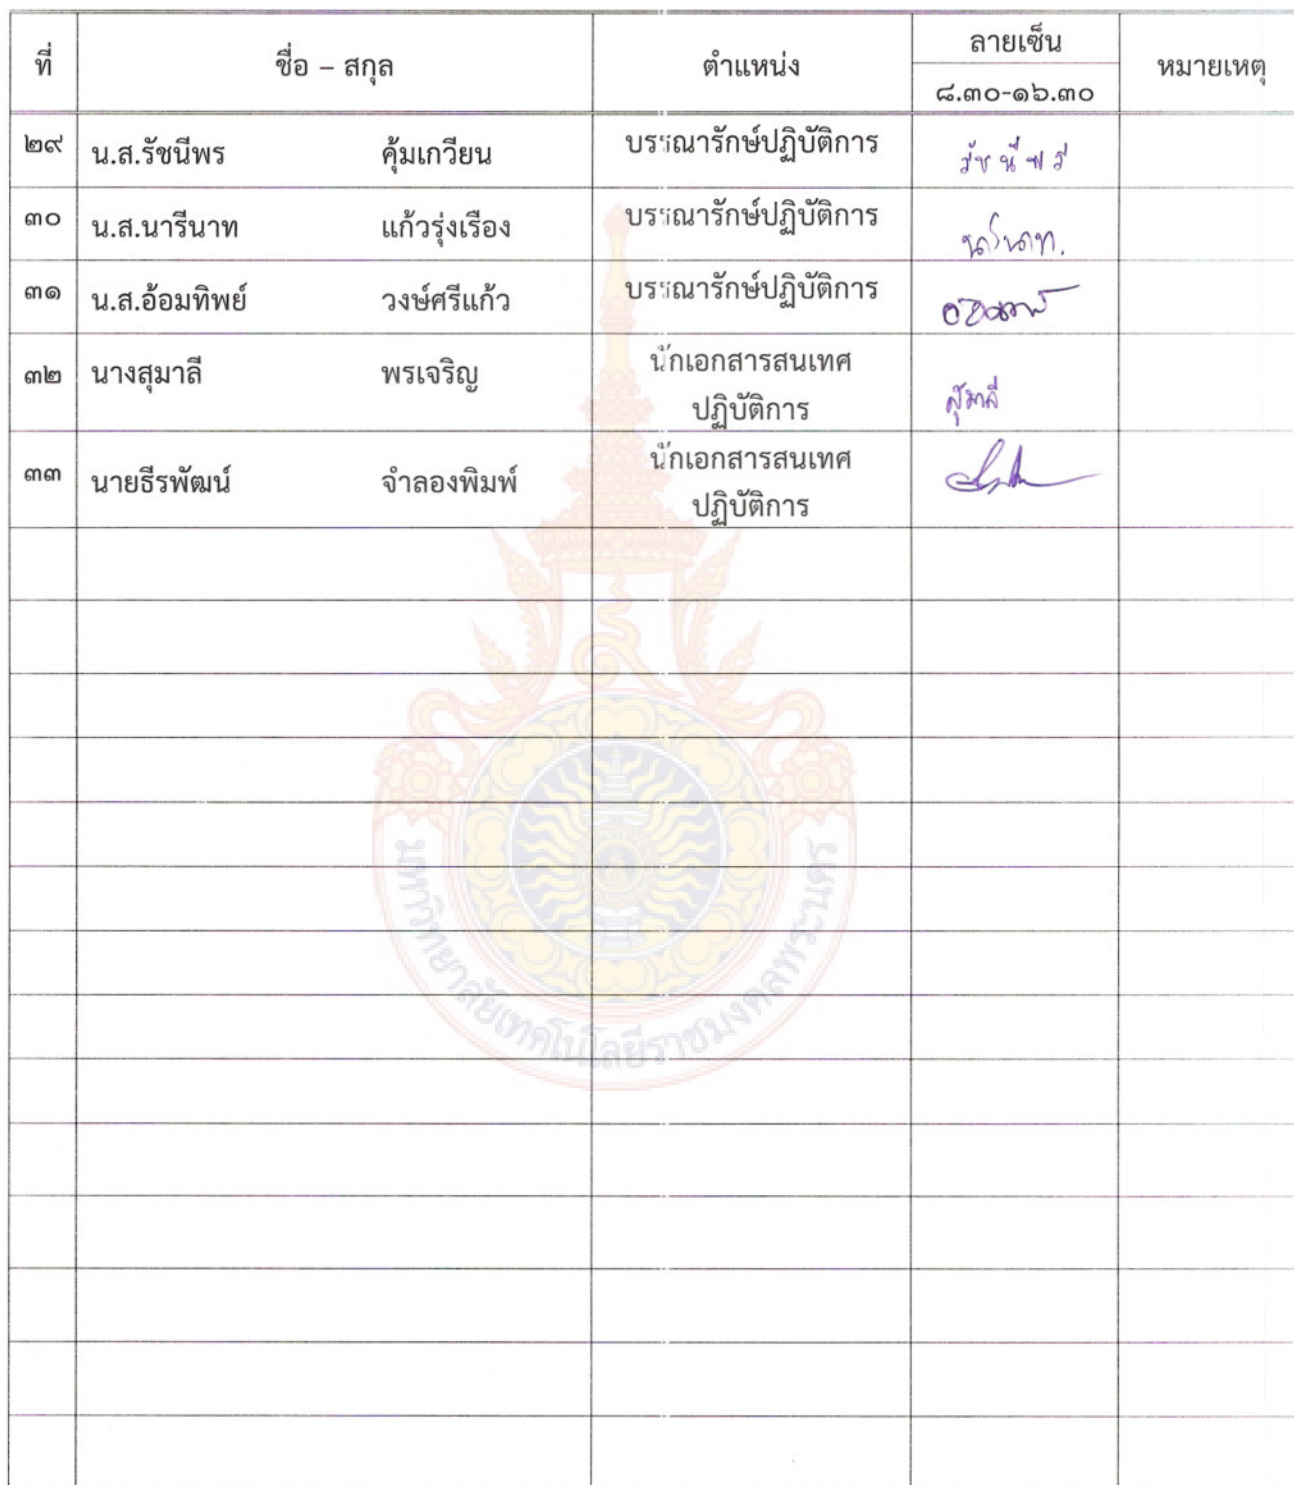 ที่ ชื่อ – สกุล ตำแหน่ง ลายเซ็น หมายเหตุ
๘.๓๐-๑๖.๓๐
๒๙ น.ส.รัชนีพร คุ้มเกวียน บรรณารักษ์ปฏิบัติการ รัชนีพร
๓๐ น.ส.นารีนาท แก้วรุ่งเรือง บรรณารักษ์ปฏิบัติการ นารีนาท.
๓๑ น.ส.อ้อมทิพย์ วงษ์ศรีแก้ว บรรณารักษ์ปฏิบัติการ
๓๒ นางสุมาลี พรเจริญ นักเอกสารสนเทศ
ปฏิบัติการ สุมาลี
๓๓ นายธีรพัฒน์ จำลองพิมพ์ นักเอกสารสนเทศ
ปฏิบัติการ
มหาวิทยาลัยเทคโนโลยีราชมงคลพระนคร